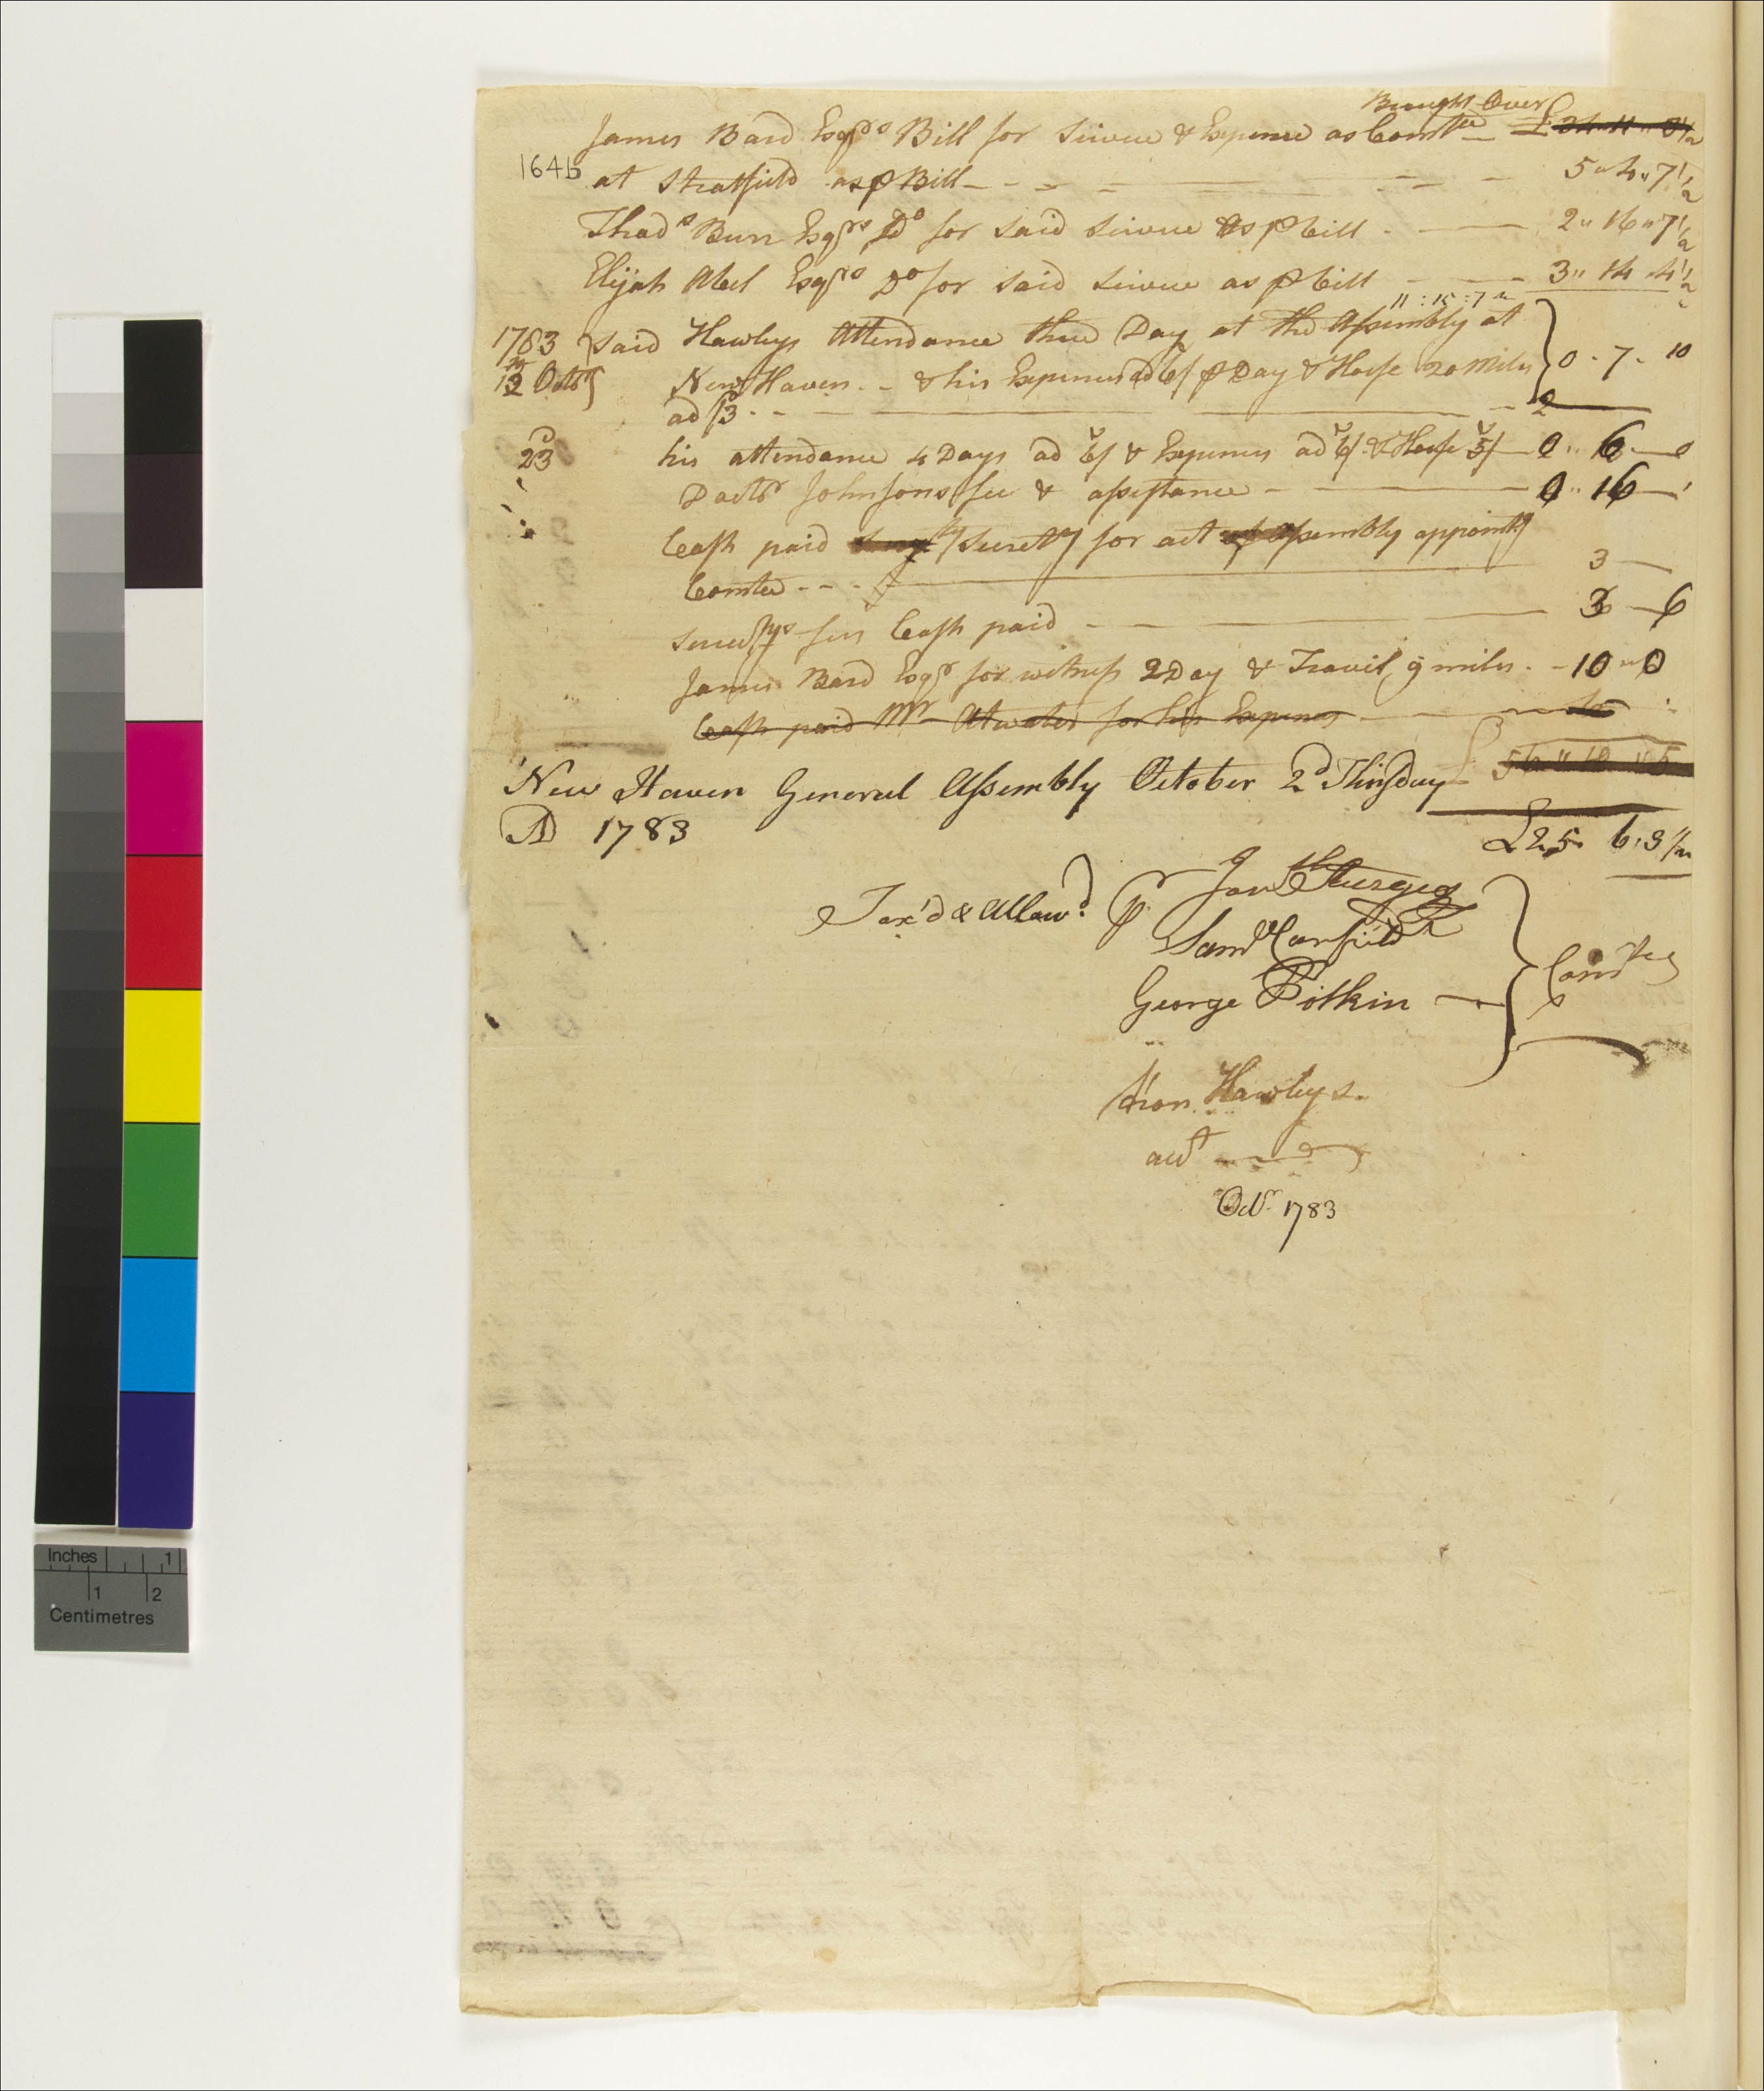 Brought Over
James Bard Esqrs Bill for Service & Expence as Comtee £
164b
at Stratfield as ⅌ Bill 5 " 4 " 7 1/2
Thads Burr Esqrs Do for said Service as ⅌ bill 2 " 16 " 7 1/2
Elijah Abel Esqrs Do for said Service as ⅌ bill 3 " 14 " 4 1/2
1783 said Hawleys Attendance three Day at the Assembly at
12 Octbr New Haven & his Expences ad 6/ ⅌ Day & Horse 20 miles 0 - 7 - 10
ad /3
23 his attendance 4 Days ad 6/ & Expences ad 6/ & Horse 5/ 0 " 6 - 0
Doctr Johnsons fee & assistance 0 " 16
Cash paid Secrety for act of Assembly appointg
Comtee 3
Secretys fees Cash paid 3 - 6
James Bard Esqr for witness 2 Day & Travil 9 miles 10 " 0
Cash paid Mr Atwater for his Expences
New Haven General Assembly October 2d Thirsday
AD 1783 £25 6 : 3 1/2
Tax'd & Allowd ⅌ Jonth Sturges
Saml Canfield
George Pitkin Comtee
Hawleys
acct
Octr 1783
Inches 1
1 2
Centimetres